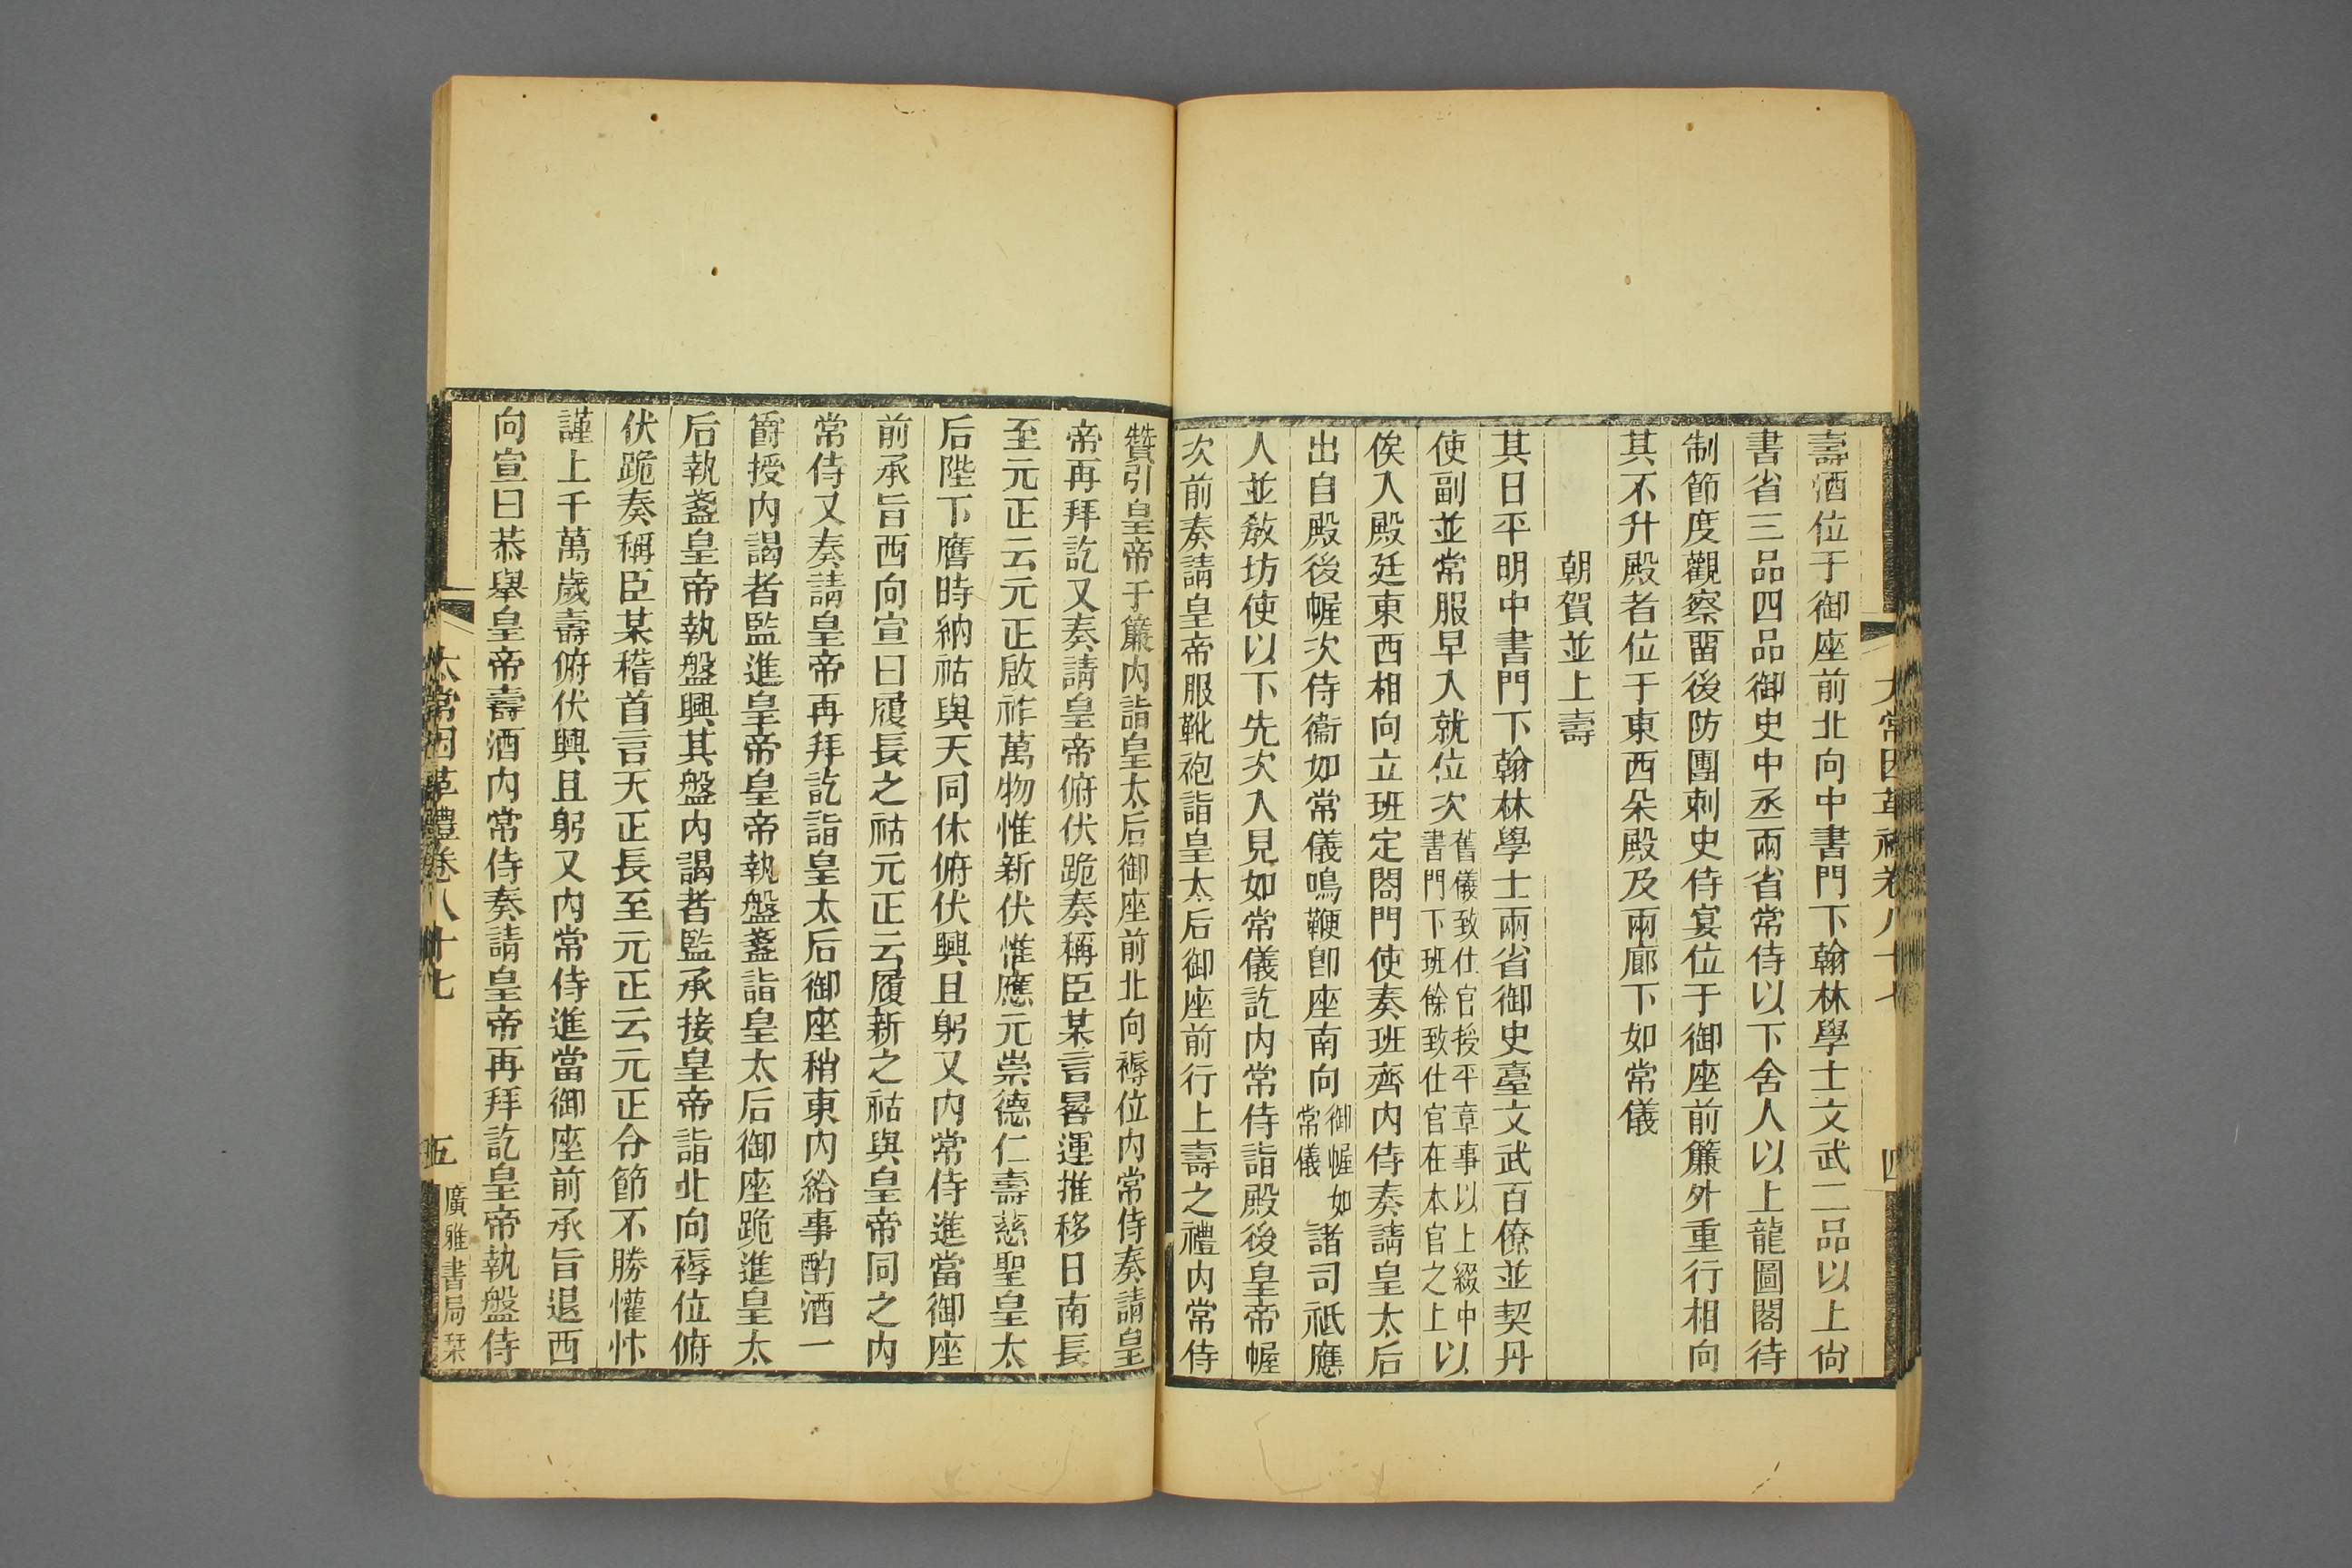 太常因革禮卷八十七
四
壽酒位于御座前北向中書門下翰林學士文武二品以上尙
書省三品四品御史中丞兩省常侍以下舍人以上龍圖閣待
制節度觀察畱後防團刺史侍宴位于御座前簾外重行相向
其不升殿者位于東西朵殿及兩廊下如常儀
朝賀並上壽
其日平明中書門下翰林學士兩省御史臺文武百僚並契丹
使副並常服早入就位次舊儀致仕官授平章事以上綴中書門下班餘致仕官在本官之上以
俟入殿廷東西相向立班定閤門使奏班齊內侍奏請皇太后
出自殿後幄次侍衞如常儀鳴鞭卽座南向御幄如常儀諸司祗應
人並敎坊使以下先次入見如常儀訖內常侍詣殿後皇帝幄
次前奏請皇帝服靴袍詣皇太后御座前行上壽之禮內常侍
贊引皇帝于簾內詣皇太后御座前北向褥位內常侍奏請皇
帝再拜訖又奏請皇帝俯伏跪奏稱臣某言晷運推移日南長
至元正云元正啟祚萬物惟新伏惟應元崇德仁壽慈聖皇太
后陛下膺時納祜與天同休俯伏興且躬又內常侍進當御座
前承旨西向宣曰履長之祜元正云履新之祜與皇帝同之內
常侍又奏請皇帝再拜訖詣皇太后御座稍東內給事酌酒一
爵授內謁者監進皇帝皇帝執盤盞詣皇太后御座跪進皇太
后執盞皇帝執盤興其盤內謁者監承接皇帝詣北向褥位俯
伏跪奏稱臣某稽首言天正長至元正云元正令節不勝懽忭
謹上千萬歲壽俯伏興且躬又內常侍進當御座前承旨退西
向宣曰恭舉皇帝壽酒內常侍奏請皇帝再拜訖皇帝執盤侍
太常因革禮卷八十七
五
廣雅書局栞